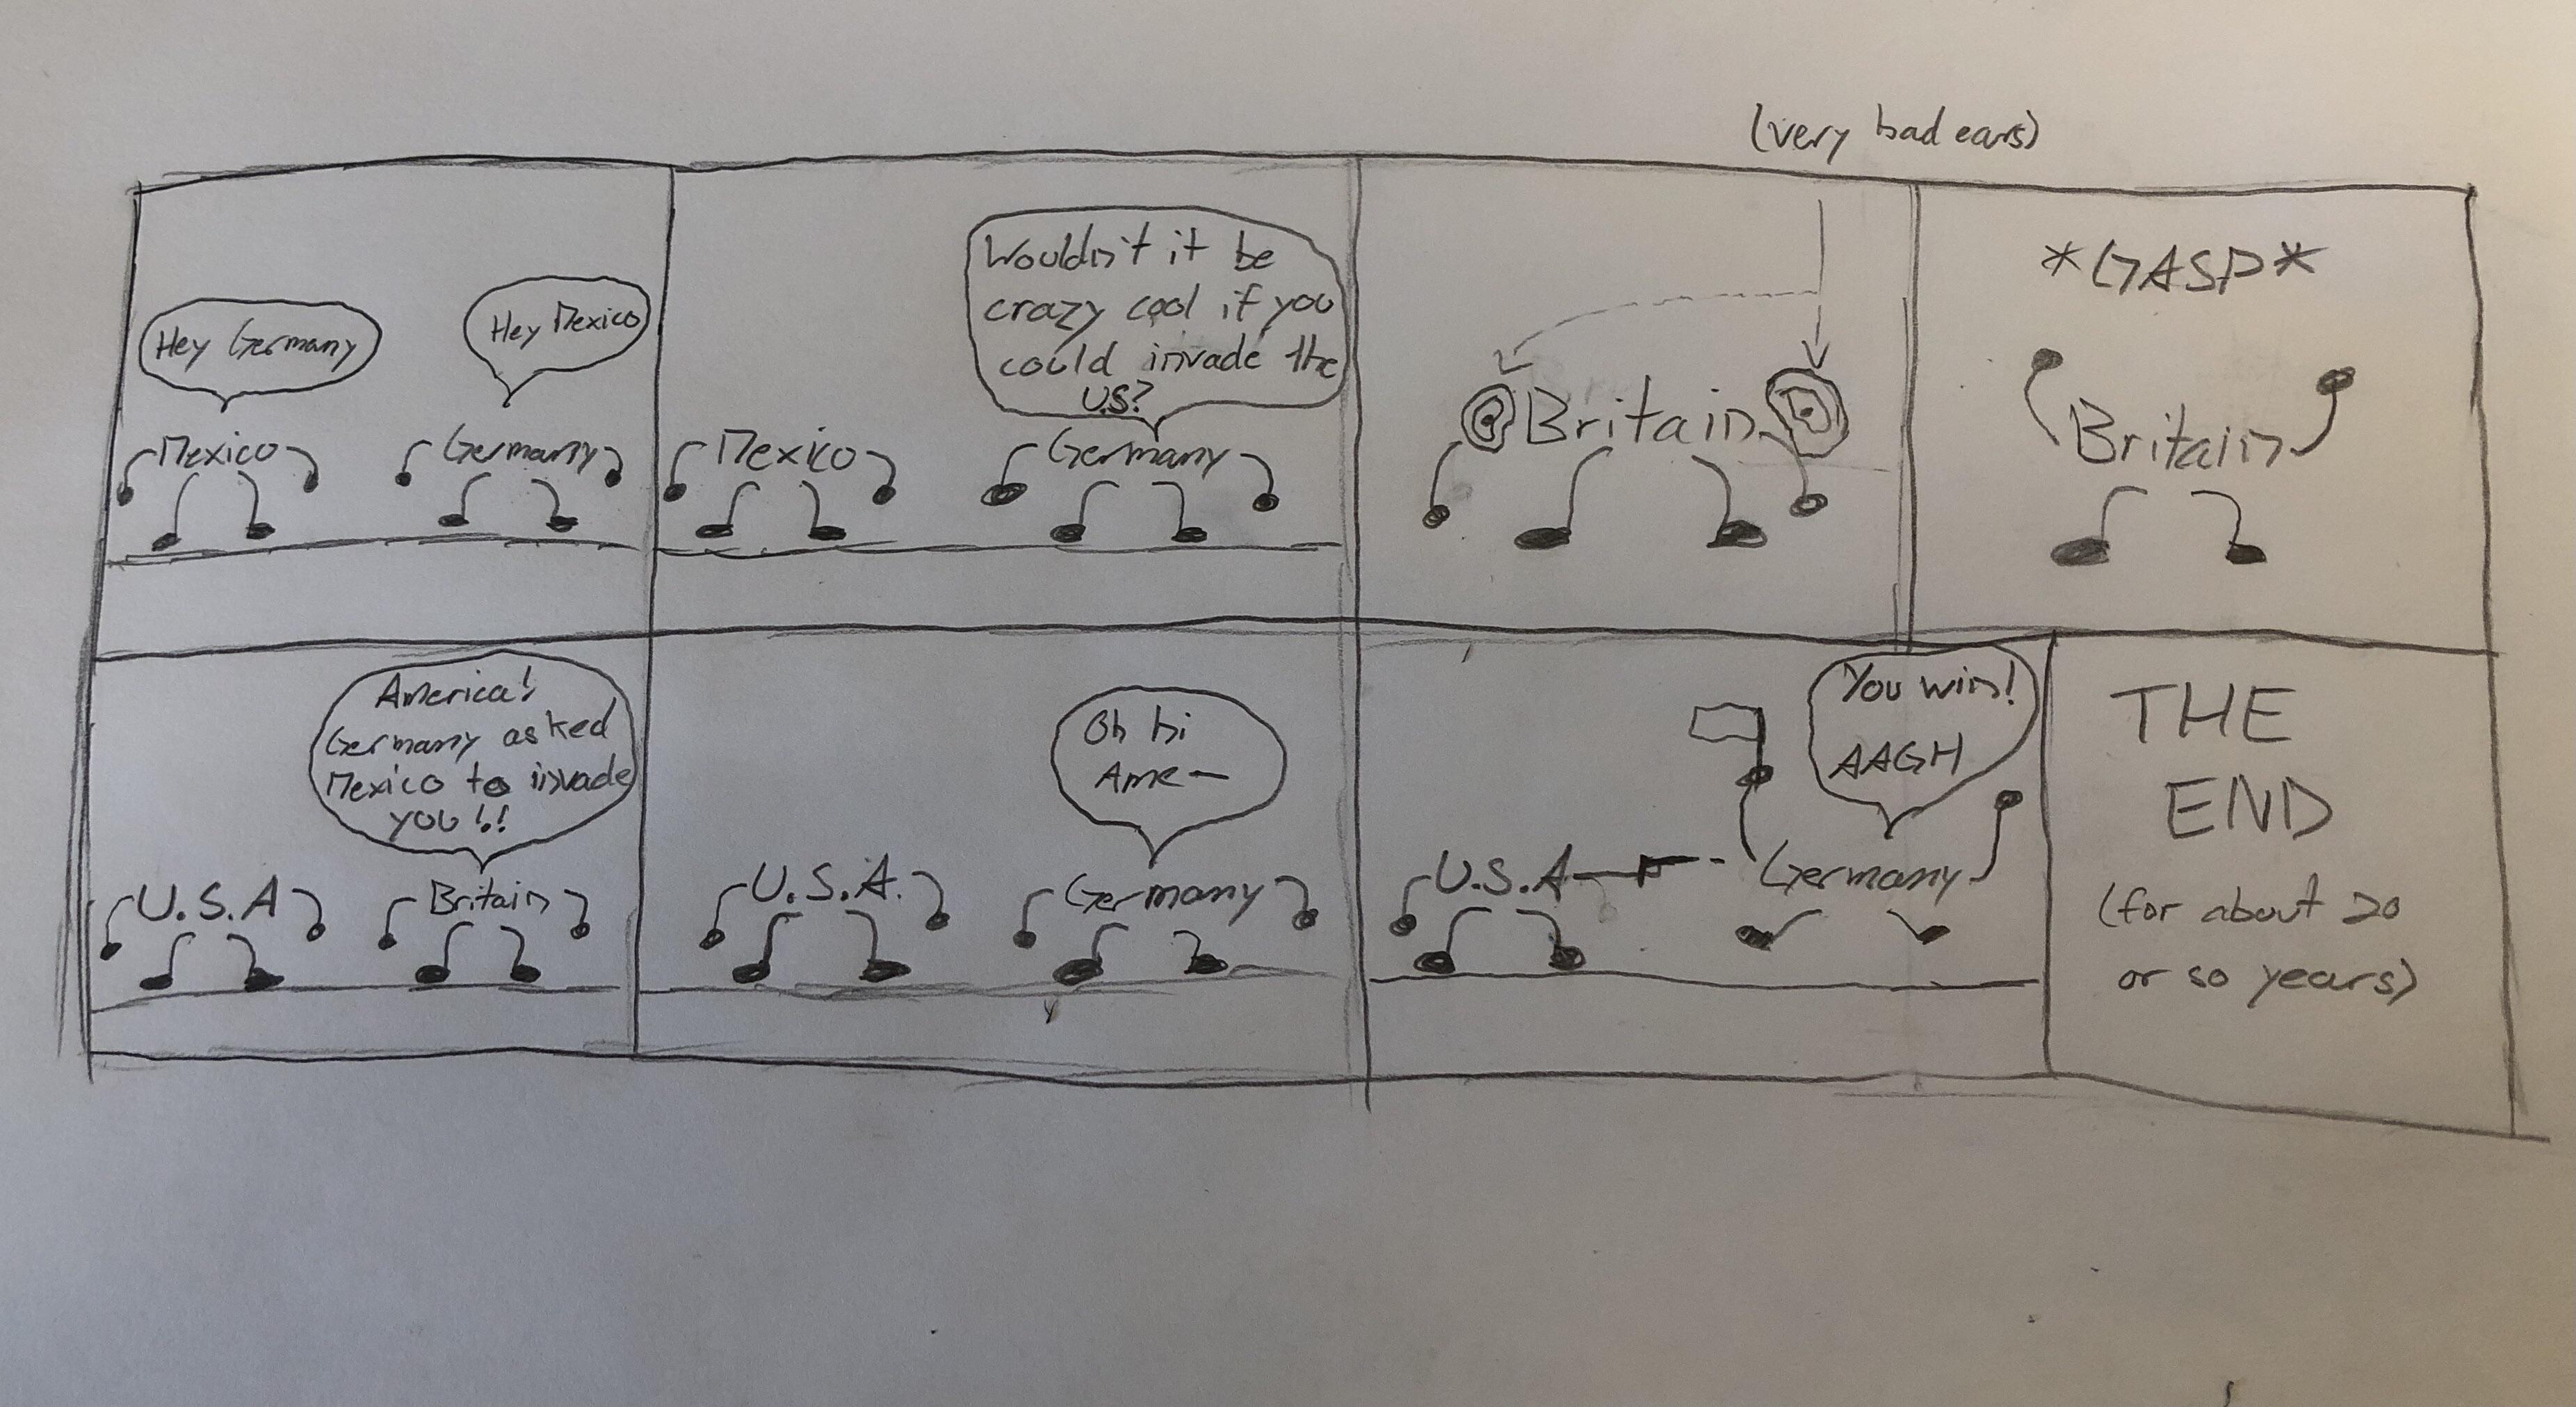 (very bad ears)
Hey Germany
Hey Mexico
Mexico
Germany
Wouldn't it be
crazy cool if you
could invade the
U.S?
Mexico
Germany
Britain
*GASP*
Britain
America!
Germany asked
Mexico to invade
you!!
U.S.A
Britain
Oh hi
Ame—
U.S.A.
Germany
You win!
AAGH
U.S.A
Germany
THE
END
(for about 20
or so years)